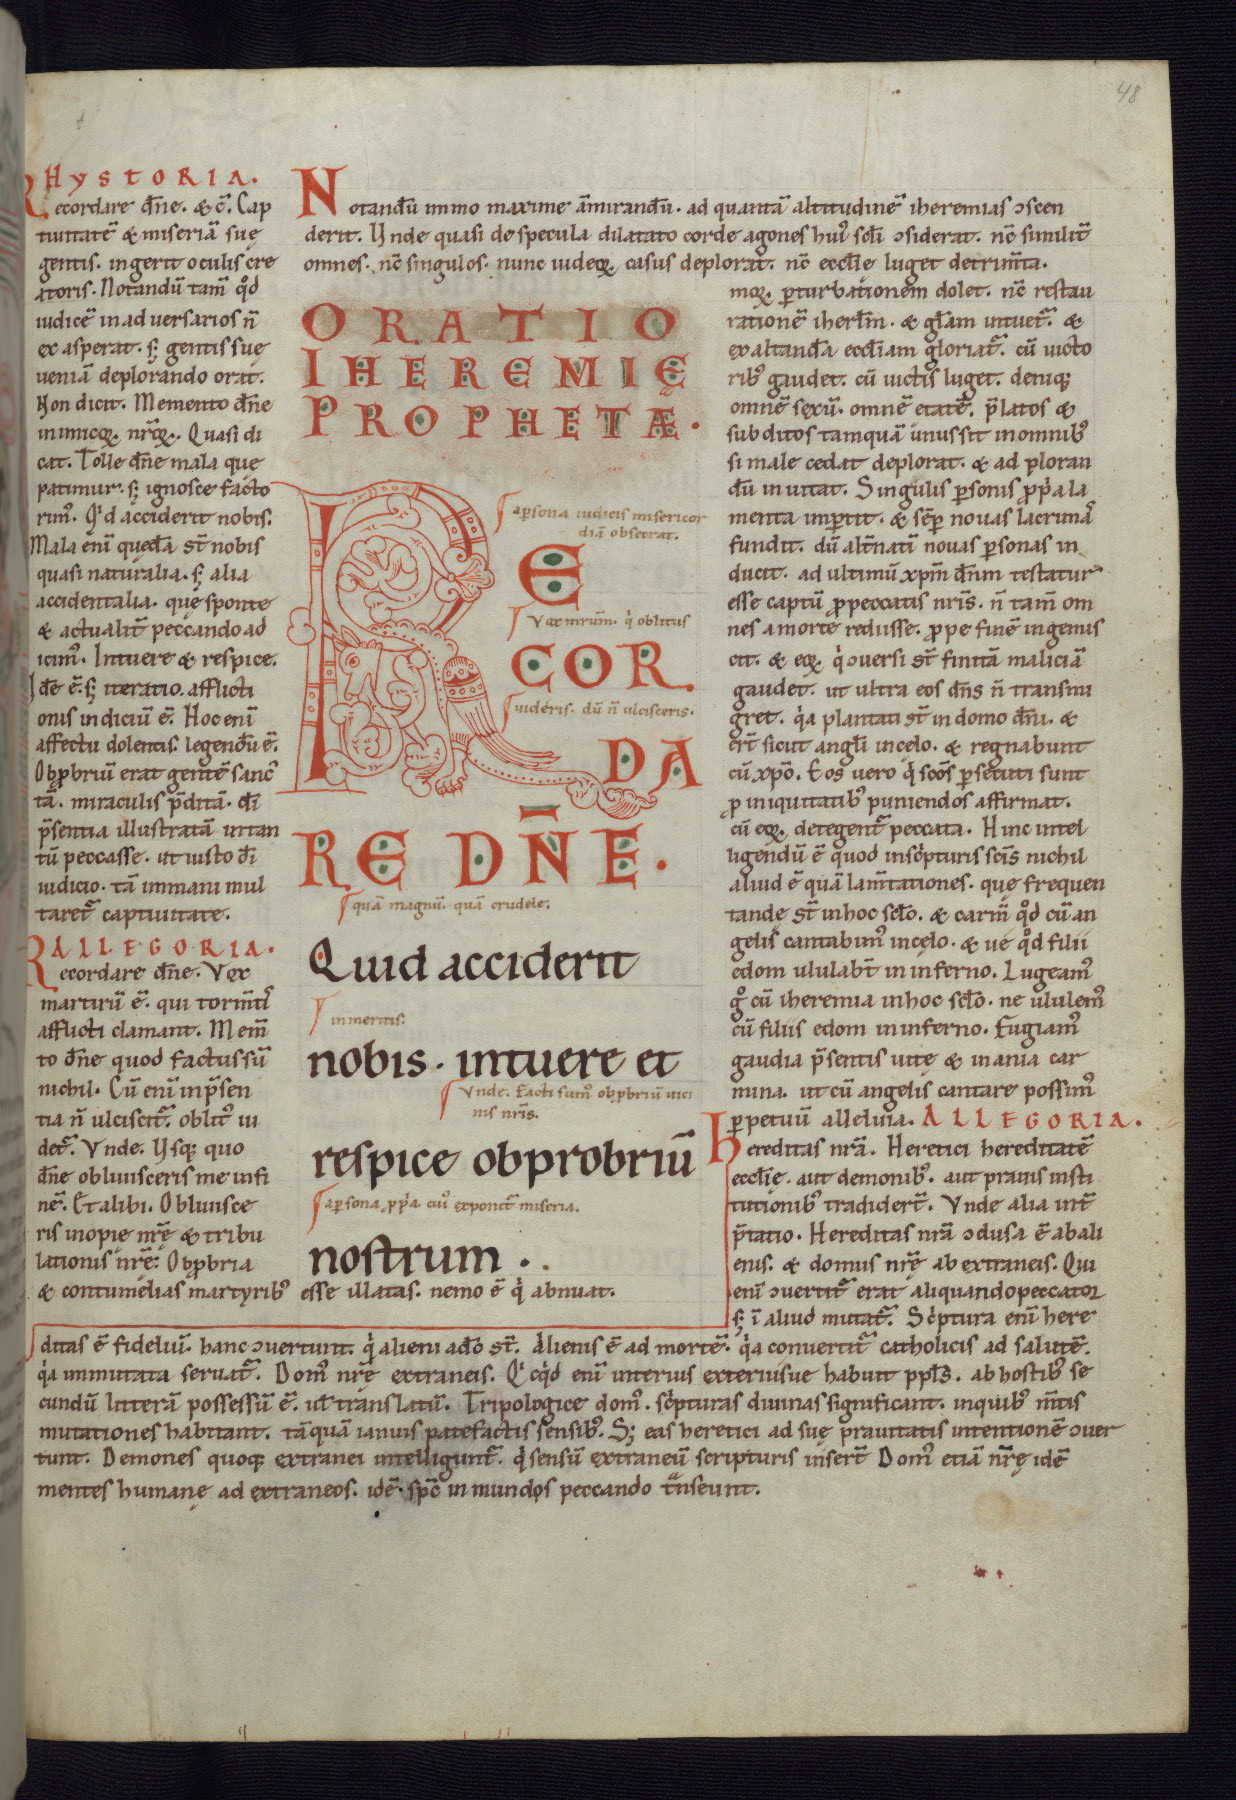 48
HYSTORIA.
Recordare dn̄e. & c̄. Cap
tiuitatē & miseriā suę
gentis. ingerit oculis cre
atoris. Notandū tam̄ qͦd
iudicē in aduersarios n̄
exasperat. sꝫ gentis suę
ueniā deplorando orat.
Non dicit. Memento dn̄e
inimicoꝝ nr̄oꝝ. Quasi di
cat. Tolle dn̄e mala quę
patimur. sꝫ ignosce facto
rum̓. Qͥd acciderit nobis.
Mala enī quedā st̄ nobis
quasi naturalia. sꝫ alia
accidentalia. quę sponte
& actualit̄ peccando ad
icim̓. Intuere & respice.
Idē ē. sꝫ iteratio. afflicti
onis indiciū ē. Hoc enī
affectu dolentis. legendū ē.
Obꝓbriū erat gentē sanc̄
tā. miraculis p̄ditā. dī
p̄sentia illustratā in tan
tū peccasse. ut iusto dī
iudicio. tā immani mul
taret᷑ captiuitate.
ALLEGORIA.
Recordare dn̄e. Vox
martirū ē. qui torm̄tis
afflicti clamant. Mem̄
to dn̄e quod factus sū
nichil. Cū enī in p̄sen
tia n̄ ulciscit᷑. oblit̓ ui
det᷑. Vnde. Vsqꝫ quo
dn̄e obliuisceris me in fi
nē. Et alibi. Obliuisce
ris inopię nr̄ę & tribu
lationis nr̄ę. Obꝓbria
& contumelias martyrib̓ esse illatas. nemo ē qͥ abnuat.
Notandū immo maxime āmirandū. ad quantā altitudinē iheremias ↄscen
derit. Vnde quasi de specula dilatato corde agones hui̓ scl̄i ↄsiderat. nc̄ similit̄
omnes. nc̄ singulos. nunc iudeoꝝ casus deplorat. nc̄ eccl̄ie luget detrim̄ta.
ORATIO
IHEREMIĘ
PROPHETÆ.
aꝑsona iudicis misericor
diā obsecrat.
RE
Vox mirum̄. qͥ oblitus
COR
uideris. dū n̄ ulcisceris.
DA
RE DN̄E.
quā magnū. quā crudele.
Quid acciderit
inmeritis.
nobis. intuere et
Vnde. Facti sum̓ obꝓbriū uici
nis nr̄is.
respice obprobriū
aꝑsona ꝓpͥa cui̓ exponit᷑ miseria.
nostrum.
moꝝ ꝑturbationem dolet. nc̄ restau
rationē iherl̄m. & gl̄am intuet᷑. &
exaltandā eccl̄iam gloriat᷑. cū uicto
rib̓ gaudet. cū uictis luget. deniqꝫ
omnē sexū. omnē etatē. p̄latos &
subditos tamquā unus sit in omnib̓
si male cedat deplorat. & ad ploran
dū inuitat. Singulis ꝑsonis ꝓpͥa la
menta imꝑtit. & sēꝑ nouas lacrimas
fundit. dū alt̄natī nouas ꝑsonas in
ducit. ad ultimū xp̄m dn̄m testatur
esse captū ꝓ peccatis nr̄is. n̄ tam̄ om
nes a morte redisse. ꝓpe finē ingemis
cit. & eoꝝ qͥ ↄuersi st̄ finitā maliciā
gaudet. ut ultra eos dn̄s n̄ transmi
gret. qͥa plantati st̄ in domo dn̄i. &
er̄t sicut angl̄i in celo. & regnabunt
cū xp̄o. Eos uero qͥ scōs ꝑsecuti sunt
ꝓ iniquitatib̓ puniendos affirmat.
cū eoꝝ detegent᷑ peccata. Hinc intel
ligendū ē quod in scͥpturis scīs nichil
aliud ē quā lam̄tationes. quę frequen
tande st̄ in hoc sclō. & carm̄ qͦd cū an
gelis cantabim̓ in celo. & ue qͦd filii
edom ululabt̄ in inferno. Lugeam̓
gͦ cū iheremia in hoc sclō. ne ululem̓
cū filiis edom in inferno. Fugiam̓
gaudia p̄sentis uitę & inania car
mina. ut cū angelis cantare possim̓
ꝑpetuū alleluia. ALLEGORIA.
Hereditas nr̄a. Heretici hereditatē
eccl̄ię. aut demonib̓. aut prauis insti
tutionib̓ tradider̄t. Vnde alia int̄
p̄tatio. Hereditas nr̄a ↄclusa ē ab ali
enis. & domus nr̄ę ab extraneis. Qui
enī ↄuertit᷑ erat aliquando peccator
sꝫ ī aliud mutat᷑. Scͥptura enī here
ditas ē fideliū. hanc ↄuertunt. qͥ alieni a dō st̄. Alienis ē ad mortē. qͥa conuertit᷑ catholicis ad salutē.
qͥa inmutata seruat᷑. Dom̓ nr̄ę extraneis. Qͥcqͥd enī interius exteriusue habuit ppl̄s. ab hostib̓ se
cundū litterā possessū ē. ul̄ translatū. Tripologice dom̓. scͥpturas diuinas significant. in quib̓ m̄tis
mutationes habitant. tāquā ianuis patefactis sensib̓. Sꝫ eas heretici ad suę prauitatis intentionē ↄuer
tunt. Demones quoqꝫ extranei intelligunt᷑. qͥ sensū extraneū scripturis inser̄t. Dom̓ etiā nr̄ę idē
mentes humanę ad extraneos. idē spc̄ inmundos peccando t̄nseunt.